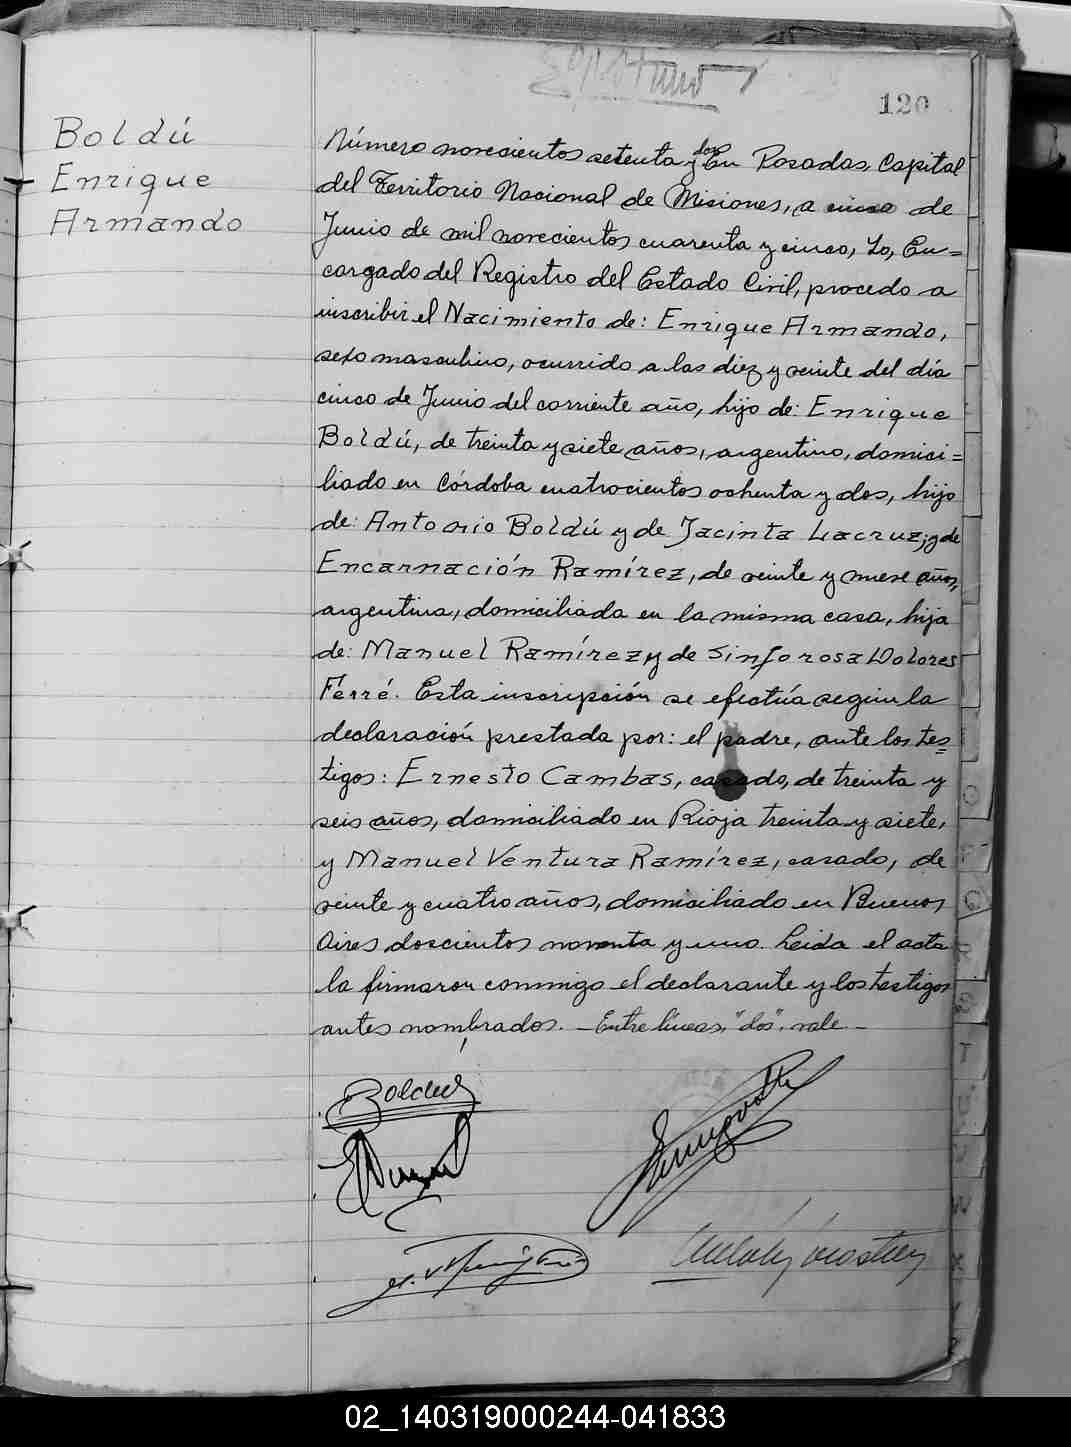 120
Boldú
Enrique
Armando
Número novecientos setenta y dos En Posadas, Capital
del Territorio Nacional de Misiones, a cinco de
Junio de mil novecientos cuarenta y cinco, Yo, En=
cargado del Registro del Estado Civil, procedo a
inscribir el Nacimiento de: Enrique Armando,
sexo masculino, ocurrido a las diez y veinte del día
cinco de Junio del corriente año, hijo de: Enrique
Boldú, de treinta y siete años, argentino, domici=
liado en Córdoba cuatrocientos ochenta y dos, hijo
de: Antonio Boldú y de Jacinta Lacruz; y de
Encarnación Ramírez, de veinte y nueve años,
argentina, domiciliada en la misma casa, hija
de: Manuel Ramírez y de Sinforosa Dolores
Ferré. Esta inscripción se efectúa según la
declaración prestada por: el padre, ante los tes=
tigos: Ernesto Cambas, casado, de treinta y
seis años, domiciliado en Rioja treinta y siete,
y Manuel Ventura Ramírez, casado, de
veinte y cuatro años, domiciliado en Buenos
Aires doscientos noventa y uno. Leida el acta
la firmaron conmigo el declarante y los testigos
antes nombrados. — Entre líneas, "dos", vale —
Boldú
02_140319000244-041833